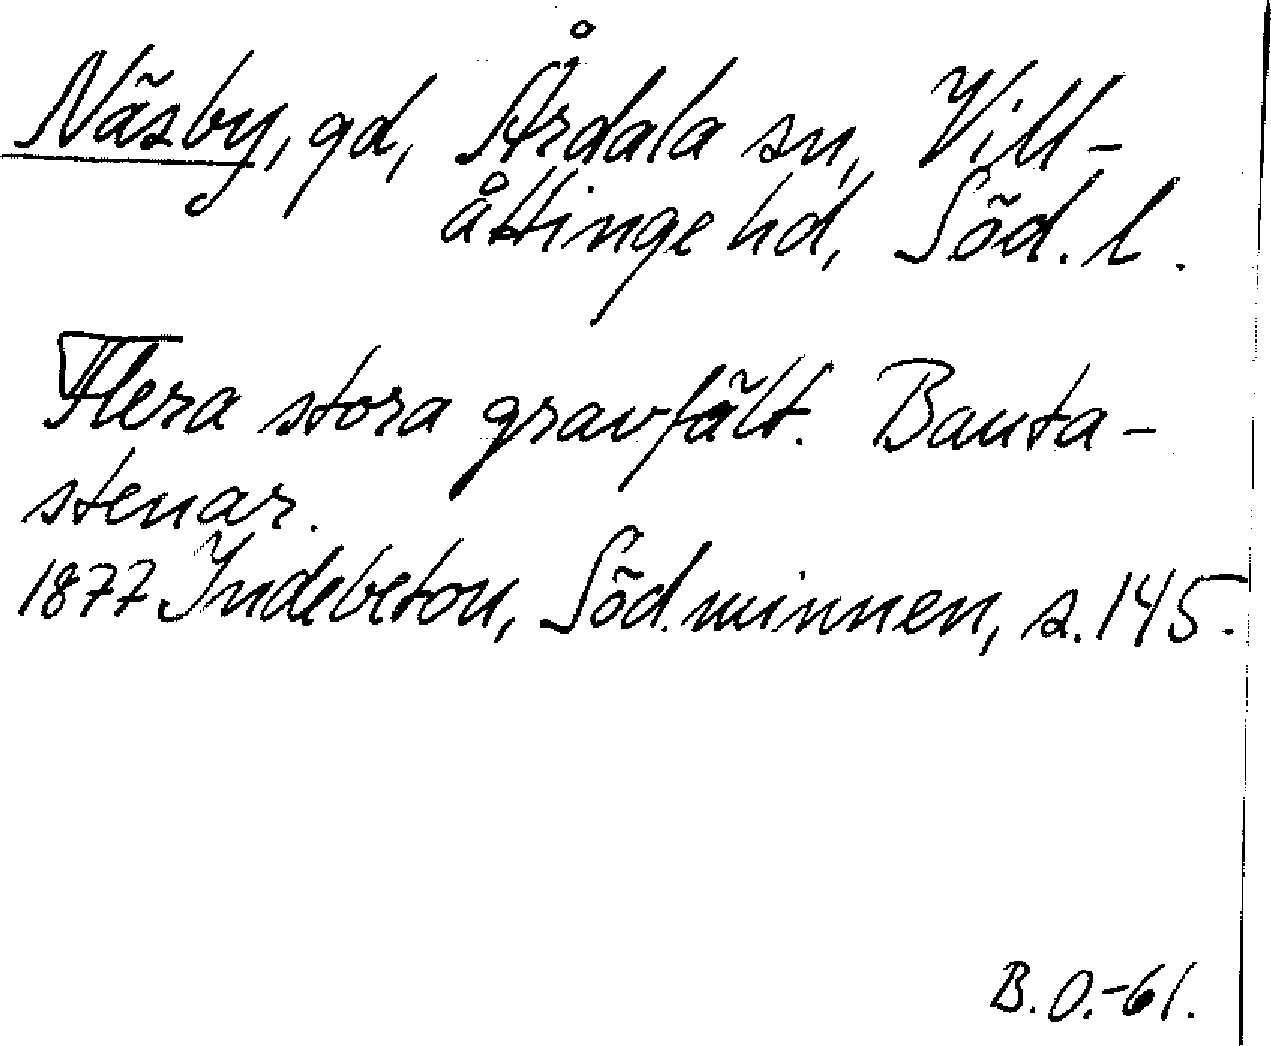 Näsby, gd, Årdala sn, Vill-
åttinge hd, Söd. l.
Flera stora gravfält. Bauta-
stenar.
1877 Indebetou, Söd. minnen, s. 145.
B. O.-61.